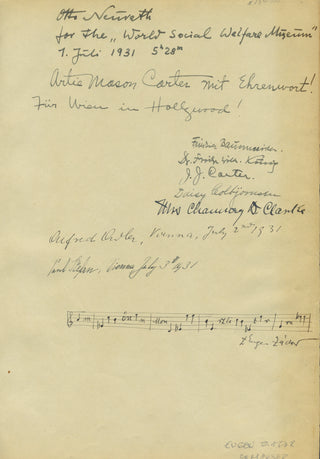 Otto Neurath
for the „World Social Welfare Museum"
1. Juli 1931 5h 28m
Artie Mason Carter mit Ehrenwort!
Für Wien in Hollywood!
J. J. Carter.
Daisy
Mrs Chauncey D Clarke
Alfred Adler, Vienna, July 2nd 1931
Paul Stefan, Vienna July 3rd 1931
Eugen Zador